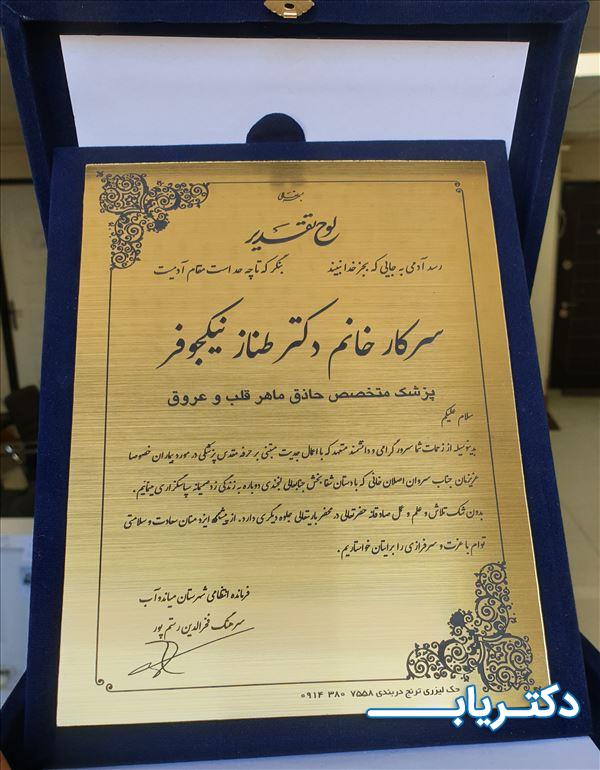 لوح تقدیر
رسد آدمی به جایی که بجز خدا نبیند بنگر که تا چه حد است مقام آدمیت
سرکار خانم دکتر طناز نیکجوفر
پزشک متخصص حاذق ماهر قلب و عروق
سلام علیکم
بدینوسیله از زحمات شما سرور گرامی و دانشمند متعهد که با اعمال جدیت مبتنی بر حرفه مقدس پزشکی در مورد بیماران خصوصا
عزیزمان جناب سروان اصلان خانی که با دستان شفا بخش جنابعالی لبخندی دوباره به زندگی زد صمیمانه سپاسگزاری مینمایم.
بدون شک تلاش و علم و عمل صادقانه حضرتعالی در محضر باریتعالی جلوه دیگری دارد. از پیشگاه ایزد منان سعادت و سلامتی
توام با عزت و سرفرازی را برایتان خواستاریم.
فرمانده انتظامی شهرستان میاندوآب
سرهنگ فخرالدین رستم پور
حک لیزری ترنج دربندی ۷۵۵۸ ۳۸۰ ۰۹۱۴
دکتریاب